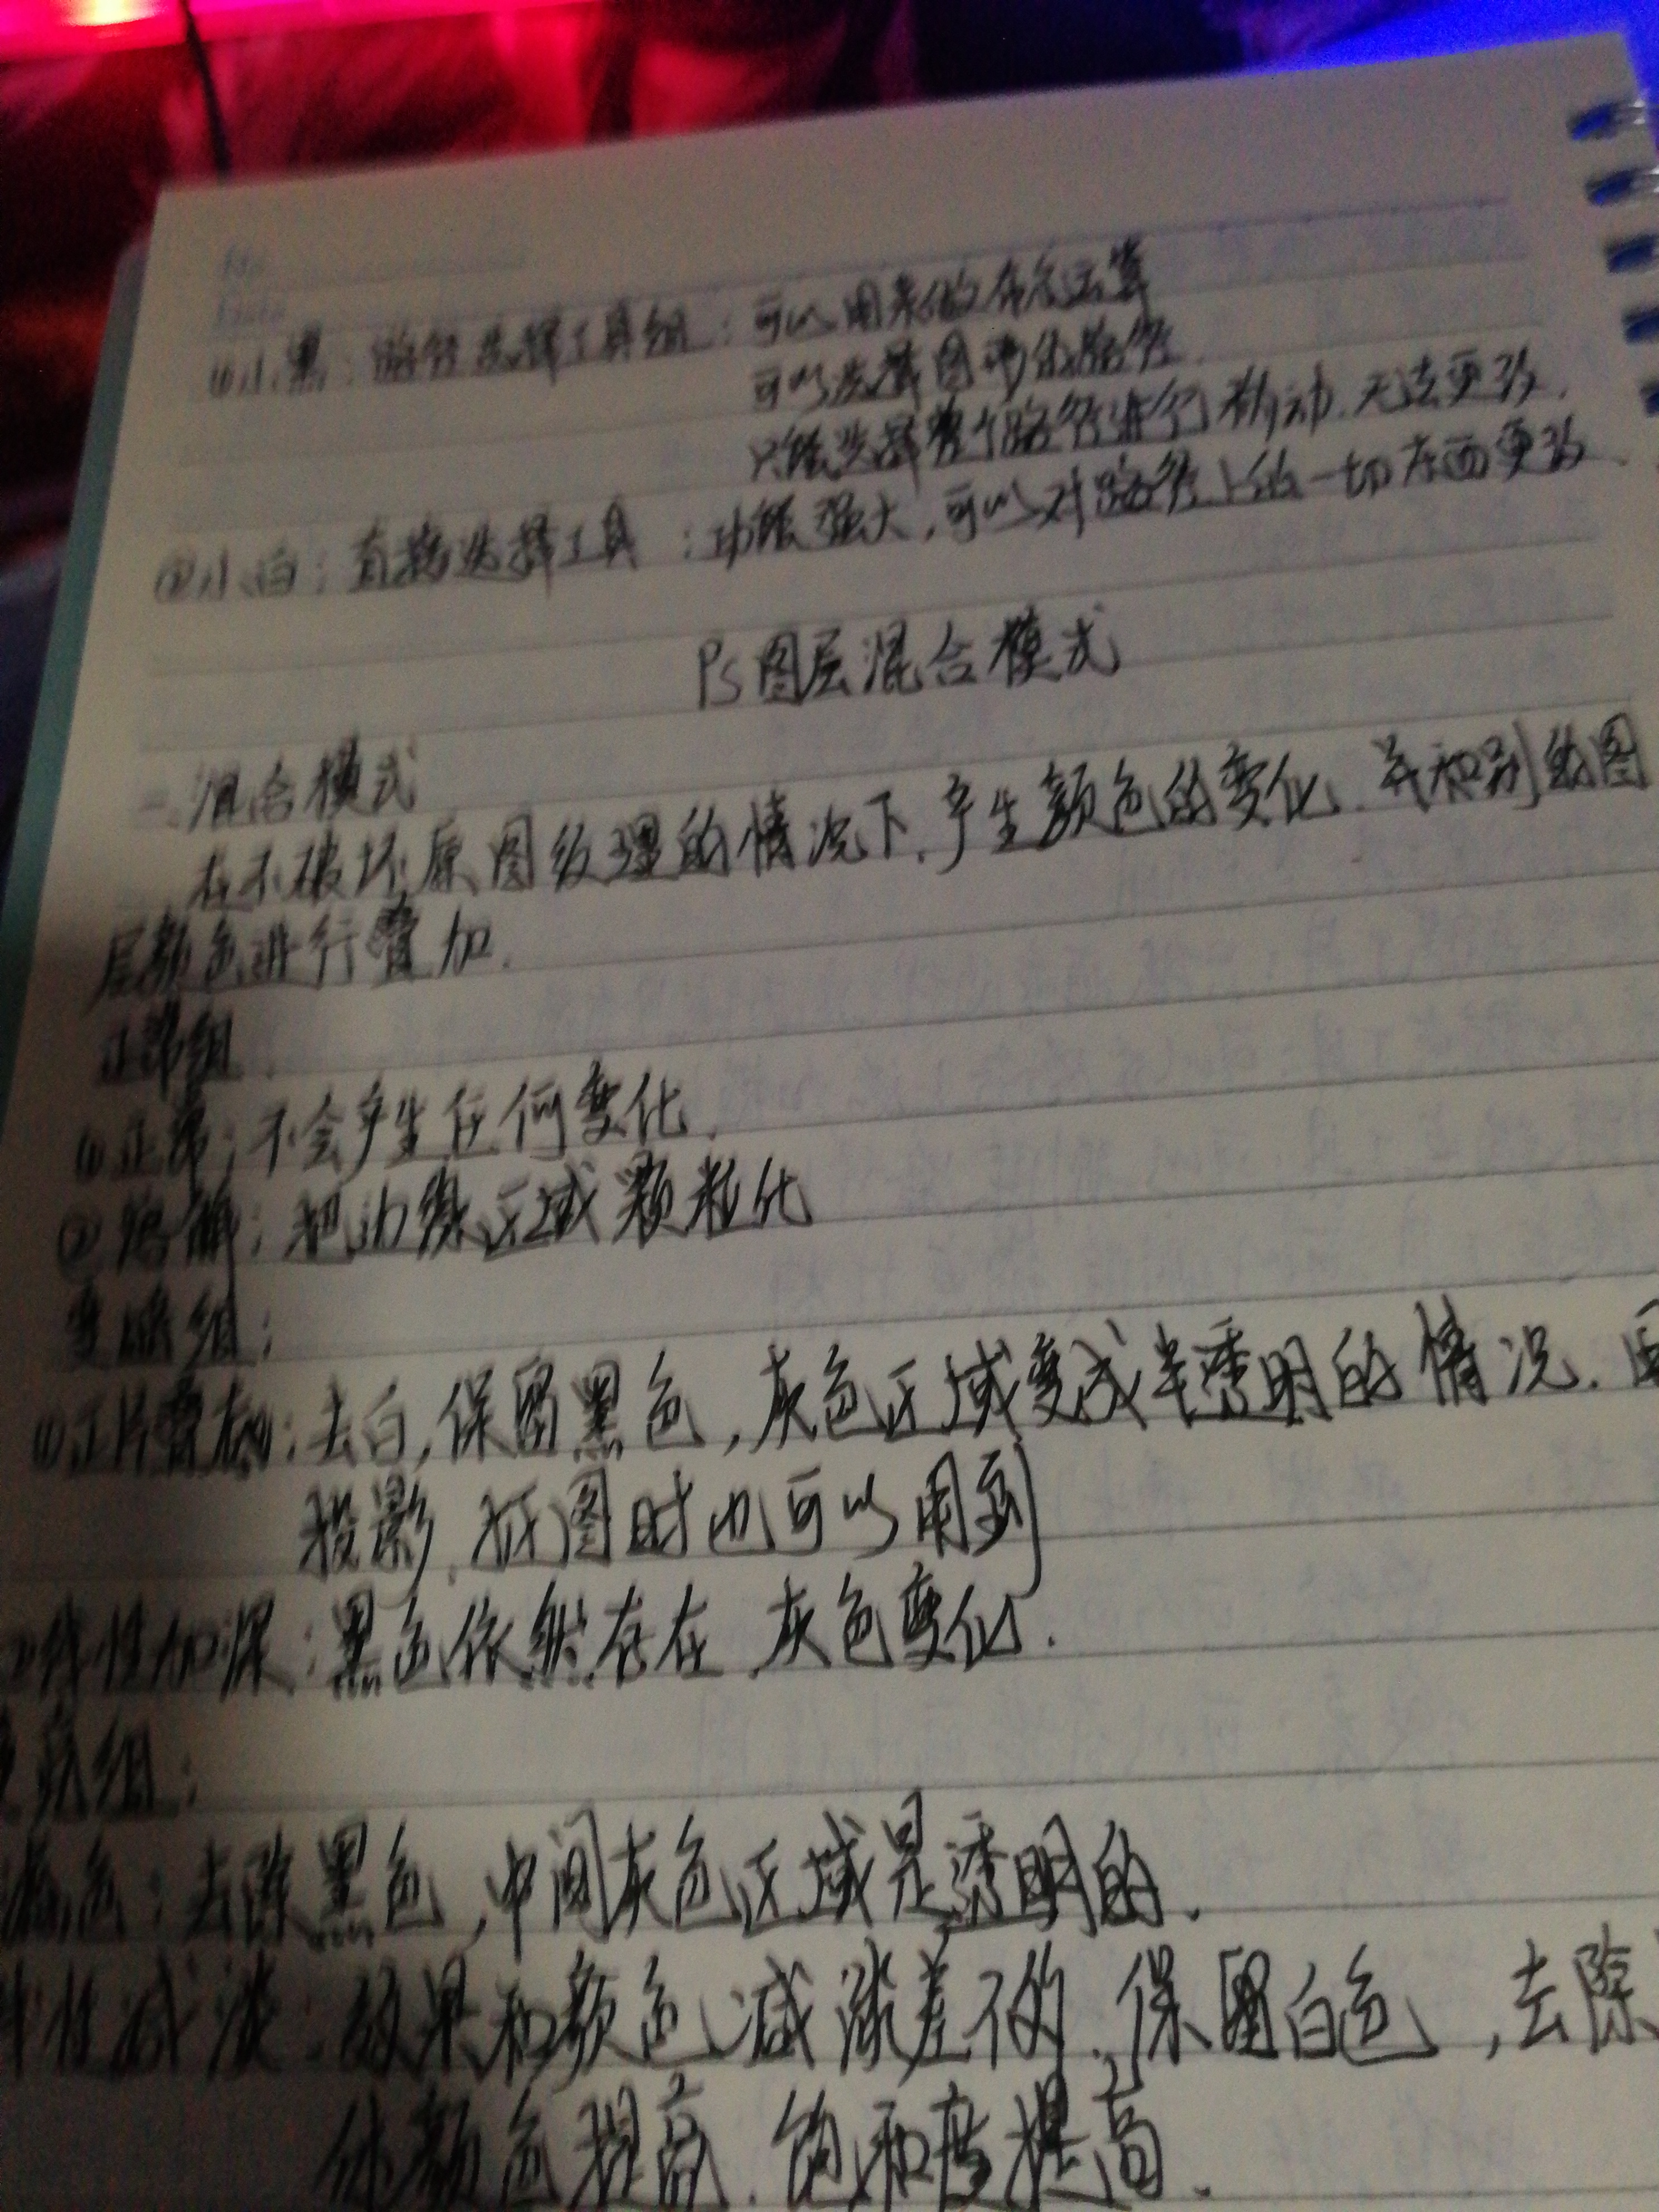 No.
Date
①小黑：路径选择工具组：可以用来做布尔运算
可以选择图形的路径.
只能选择整个路径进行移动.无法更改.
②小白：直接选择工具：功能强大,可以对路径上的一切东西更改.
Ps图层混合模式
一.混合模式
在不破坏原图纹理的情况下.产生颜色的变化.并和别的图
层颜色进行叠加.
正常组:
①正常：不会产生任何变化.
②溶解：把边缘区域颗粒化
变暗组：
①正片叠底：去白,保留黑色,灰色区域变成半透明的情况.
投影.抠图时也可以用到
②线性加深：黑色依然存在.灰色变化.
变亮组：
滤色：去除黑色,中间灰色区域是透明的.
线性减淡：效果和颜色减淡差不多.保留白色,去除
体颜色提高.饱和度提高.